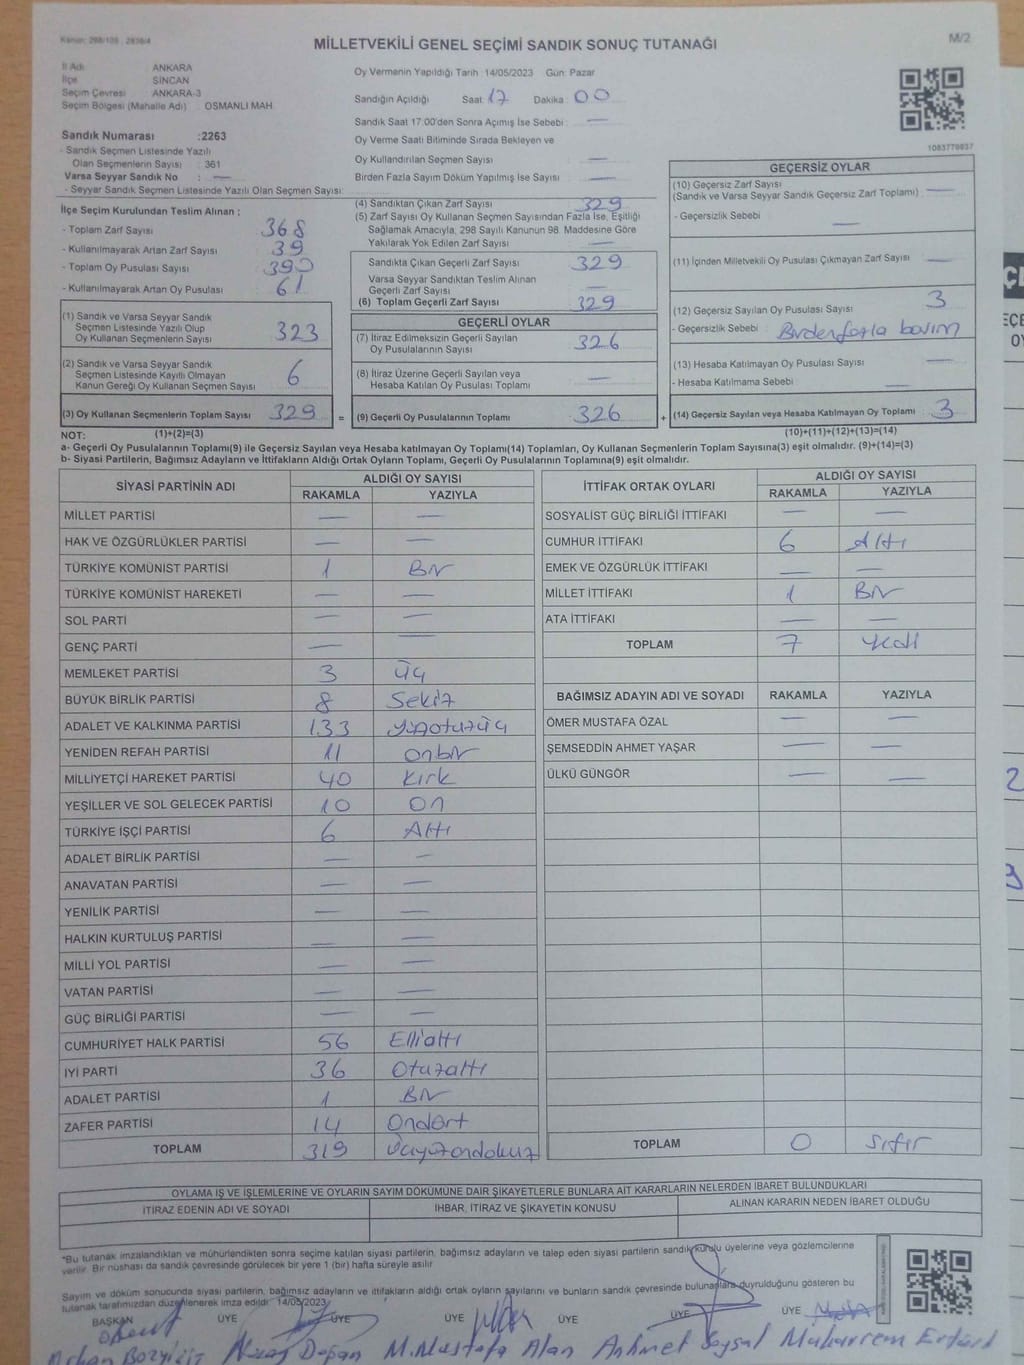 Kanun: 298/105 , 2839/4
MİLLETVEKİLİ GENEL SEÇİMİ SANDIK SONUÇ TUTANAĞI
M/2
İl Adı ANKARA
İlçe SİNCAN
Seçim Çevresi ANKARA-3
Seçim Bölgesi (Mahalle Adı) OSMANLI MAH.
Sandık Numarası :2263
- Sandık Seçmen Listesinde Yazılı
Olan Seçmenlerin Sayısı : 361
Varsa Seyyar Sandık No : —
- Seyyar Sandık Seçmen Listesinde Yazılı Olan Seçmen Sayısı:
Oy Vermenin Yapıldığı Tarih :14/05/2023 Gün: Pazar
Sandığın Açıldığı Saat: 17 Dakika: 00
Sandık Saat 17:00'den Sonra Açımış İse Sebebi : —
Oy Verme Saati Bitiminde Sırada Bekleyen ve
Oy Kullandırılan Seçmen Sayısı : —
Birden Fazla Sayım Döküm Yapılmış İse Sayısı : —
1083779037
İlçe Seçim Kurulundan Teslim Alınan ;
- Toplam Zarf Sayısı 368
- Kullanılmayarak Artan Zarf Sayısı 39
- Toplam Oy Pusulası Sayısı 390
- Kullanılmayarak Artan Oy Pusulası 61
(1) Sandık ve Varsa Seyyar Sandık
Seçmen Listesinde Yazılı Olup
Oy Kullanan Seçmenlerin Sayısı 323
(2) Sandık ve Varsa Seyyar Sandık
Seçmen Listesinde Kayıtlı Olmayan
Kanun Gereği Oy Kullanan Seçmen Sayısı 6
(3) Oy Kullanan Seçmenlerin Toplam Sayısı 329 =
(4) Sandıktan Çıkan Zarf Sayısı 329
(5) Zarf Sayısı Oy Kullanan Seçmen Sayısından Fazla İse, Eşitliği
Sağlamak Amacıyla, 298 Sayılı Kanunun 98. Maddesine Göre
Yakılarak Yok Edilen Zarf Sayısı —
Sandıkta Çıkan Geçerli Zarf Sayısı 329
Varsa Seyyar Sandıktan Teslim Alınan
Geçerli Zarf Sayısı —
(6) Toplam Geçerli Zarf Sayısı 329
GEÇERLİ OYLAR
(7) İtiraz Edilmeksizin Geçerli Sayılan
Oy Pusulalarının Sayısı 326
(8) İtiraz Üzerine Geçerli Sayılan veya
Hesaba Katılan Oy Pusulası Toplamı —
(9) Geçerli Oy Pusulalarının Toplamı 326 +
GEÇERSİZ OYLAR
(10) Geçersiz Zarf Sayısı
(Sandık ve Varsa Seyyar Sandık Geçersiz Zarf Toplamı) —
- Geçersizlik Sebebi —
(11) İçinden Milletvekili Oy Pusulası Çıkmayan Zarf Sayısı —
(12) Geçersiz Sayılan Oy Pusulası Sayısı 3
- Geçersizlik Sebebi : Birdenfazla basım
(13) Hesaba Katılmayan Oy Pusulası Sayısı —
- Hesaba Katılmama Sebebi —
(14) Geçersiz Sayılan veya Hesaba Katılmayan Oy Toplamı 3
NOT: (1)+(2)=(3) (10)+(11)+(12)+(13)=(14)
a- Geçerli Oy Pusulalarının Toplamı(9) ile Geçersiz Sayılan veya Hesaba katılmayan Oy Toplamı(14) Toplamları, Oy Kullanan Seçmenlerin Toplam Sayısına(3) eşit olmalıdır. (9)+(14)=(3)
b- Siyasi Partilerin, Bağımsız Adayların ve İttifakların Aldığı Ortak Oyların Toplamı, Geçerli Oy Pusulalarının Toplamına(9) eşit olmalıdır.
SİYASİ PARTİNİN ADI ALDIĞI OY SAYISI
RAKAMLA YAZIYLA
MİLLET PARTİSİ — —
HAK VE ÖZGÜRLÜKLER PARTİSİ — —
TÜRKİYE KOMÜNİST PARTİSİ 1 Bir
TÜRKİYE KOMÜNİST HAREKETİ — —
SOL PARTİ — —
GENÇ PARTİ — —
MEMLEKET PARTİSİ 3 üç
BÜYÜK BİRLİK PARTİSİ 8 Sekiz
ADALET VE KALKINMA PARTİSİ 133 yüzotuzüç
YENİDEN REFAH PARTİSİ 11 onbir
MİLLİYETÇİ HAREKET PARTİSİ 40 kırk
YEŞİLLER VE SOL GELECEK PARTİSİ 10 on
TÜRKİYE İŞÇİ PARTİSİ 6 Altı
ADALET BİRLİK PARTİSİ — —
ANAVATAN PARTİSİ — —
YENİLİK PARTİSİ — —
HALKIN KURTULUŞ PARTİSİ — —
MİLLİ YOL PARTİSİ — —
VATAN PARTİSİ — —
GÜÇ BİRLİĞİ PARTİSİ — —
CUMHURİYET HALK PARTİSİ 56 Elli altı
İYİ PARTİ 36 Otuzaltı
ADALET PARTİSİ 1 Bir
ZAFER PARTİSİ 14 Ondört
TOPLAM 319 Üçyüzondokuz
İTTİFAK ORTAK OYLARI ALDIĞI OY SAYISI
RAKAMLA YAZIYLA
SOSYALİST GÜÇ BİRLİĞİ İTTİFAKI — —
CUMHUR İTTİFAKI 6 Altı
EMEK VE ÖZGÜRLÜK İTTİFAKI — —
MİLLET İTTİFAKI 1 Bir
ATA İTTİFAKI — —
TOPLAM 7 yedi
BAĞIMSIZ ADAYIN ADI VE SOYADI RAKAMLA YAZIYLA
ÖMER MUSTAFA ÖZAL — —
ŞEMSEDDİN AHMET YAŞAR — —
ÜLKÜ GÜNGÖR — —
TOPLAM 0 Sıfır
OYLAMA İŞ VE İŞLEMLERİNE VE OYLARIN SAYIM DÖKÜMÜNE DAİR ŞİKAYETLERLE BUNLARA AİT KARARLARIN NELERDEN İBARET BULUNDUKLARI
İTİRAZ EDENİN ADI VE SOYADI İHBAR, İTİRAZ VE ŞİKAYETİN KONUSU ALINAN KARARIN NEDEN İBARET OLDUĞU
*Bu tutanak imzalandıktan ve mühürlendikten sonra seçime katılan siyasi partilerin, bağımsız adayların ve talep eden siyasi partilerin sandık kurulu üyelerine veya gözlemcilerine
verilir. Bir nüshası da sandık çevresinde görülecek bir yere 1 (bir) hafta süreyle asılır
Sayım ve döküm sonucunda siyasi partilerin, bağımsız adayların ve ittifakların aldığı ortak oyların sayılarını ve bunların sandık çevresinde bulunanlara duyrulduğunu gösteren bu
tutanak tarafımızdan düzenlenerek imza edildi. 14/05/2023
BAŞKAN ÜYE ÜYE ÜYE ÜYE ÜYE ÜYE
Doğan M.Mustafa Alan Ahmet Soysal Muharrem